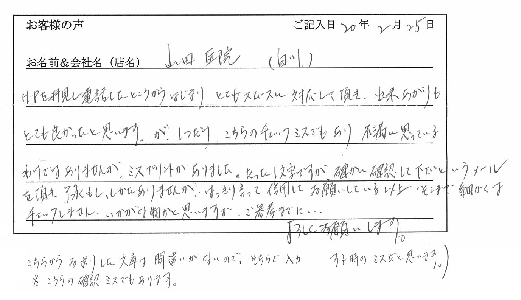 お客様の声 ご記入日 20年 2月 25日
お名前&会社名(店名) 山田医院 (白川)
HPを拝見し電話したところからはじまり とてもスムーズに対応して頂き、出来あがりも
とても良かったと思います。が、1つだけ こちらのチェックミスでもあり 不満に思っている
わけではありませんが、ミスプリントがありました。たった1文字ですが 確かに確認して下さいというメール
を頂き 了承もし、しかたありませんが、はっきり言って 信用してお願いしている以上 そこまで細かくは
チェックしません。いかがな物かと思いますが、ご参考までに…
よろしくお願いします。
こちらからお送りした文章は間違いがないので、そちらで入力 する時のミスだと思います。)
※こちらの確認ミスでもあります。